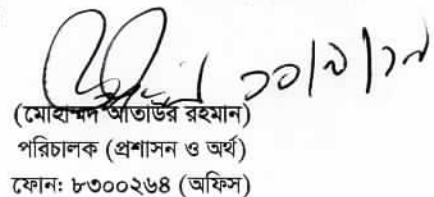 (মোহাম্মদ আতাউর রহমান)
পরিচালক (প্রশাসন ও অর্থ)
ফোন: ৮৩০০২৬৪ (অফিস)